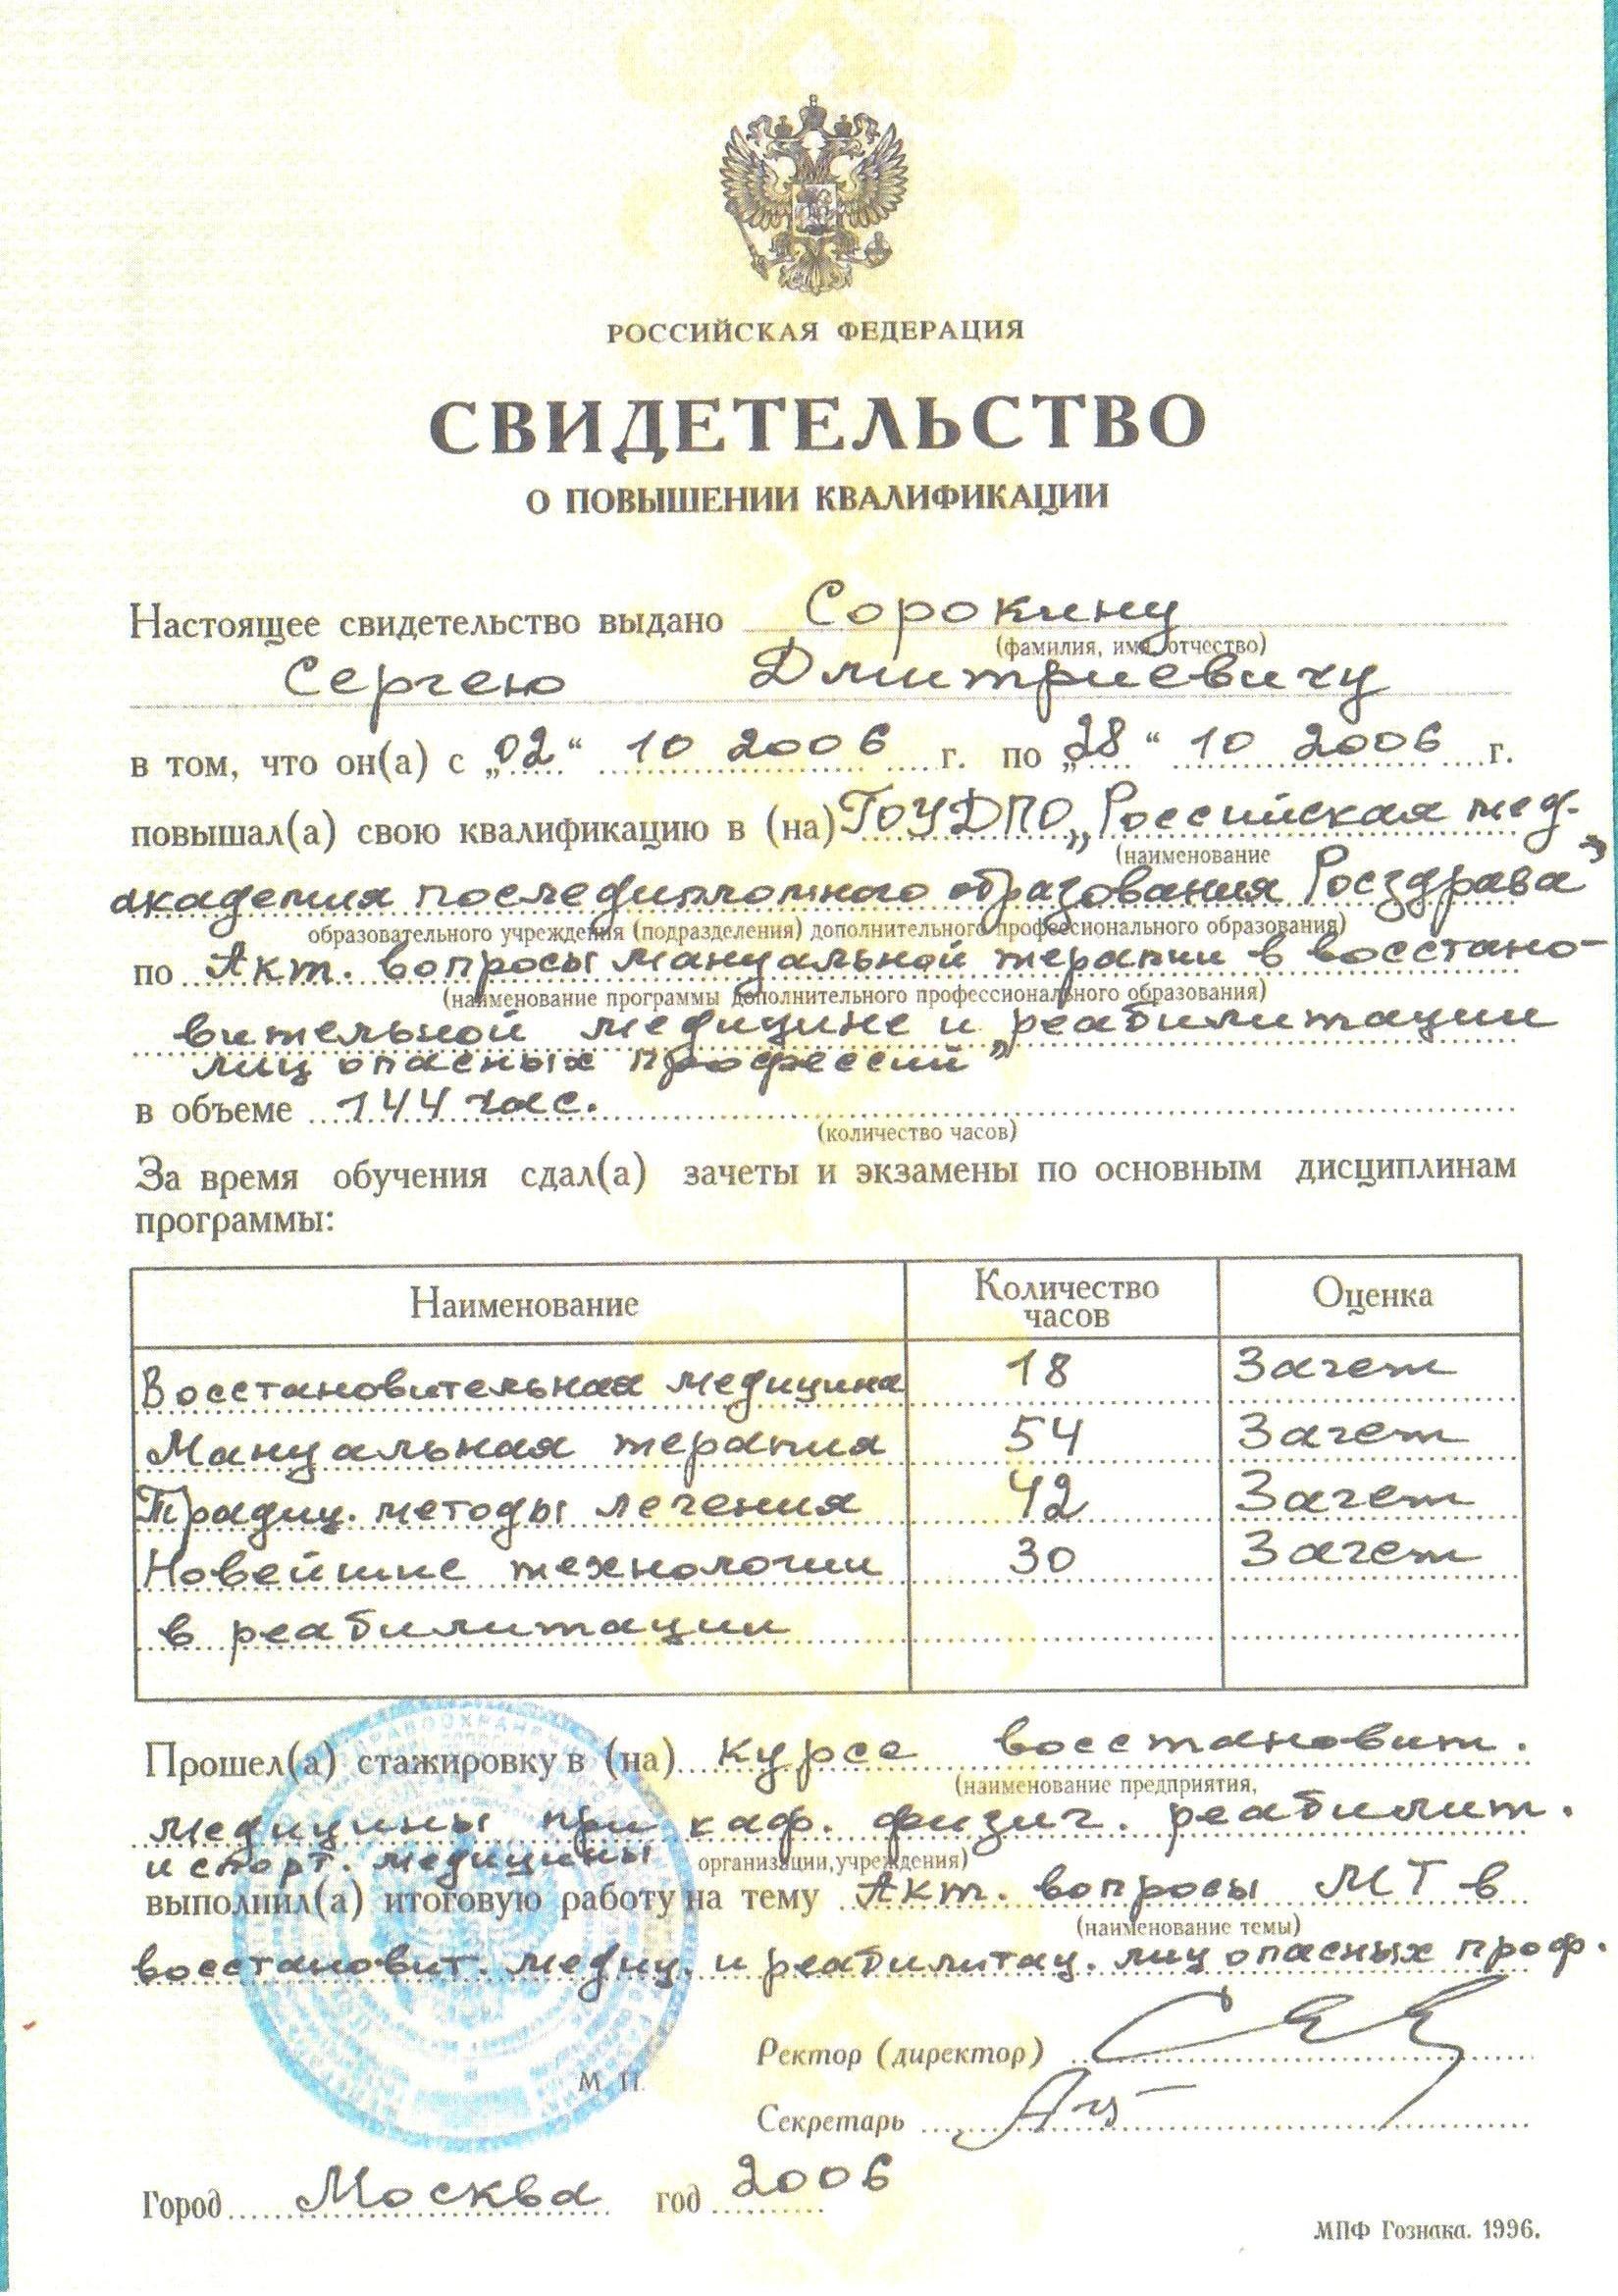 РОССИЙСКАЯ ФЕДЕРАЦИЯ
СВИДЕТЕЛЬСТВО
О ПОВЫШЕНИИ КВАЛИФИКАЦИИ
Настоящее свидетельство выдано Сорокину
(фамилия, имя, отчество)
Сергею Дмитриевичу
в том, что он(а) с „02“ 10 2006 г. по „28“ 10 2006 г.
повышал(а) свою квалификацию в (на) ГОУДПО „Российская мед.
(наименование
академия последипломного образования Росздрава”
образовательного учреждения (подразделения) дополнительного профессионального образования)
по Акт. вопросы мануальной терапии в восстано-
(наименование программы дополнительного профессионального образования)
вительной медицине и реабилитации
лиц опасных профессий”
в объеме 144 час.
(количество часов)
За время обучения сдал(а) зачеты и экзамены по основным дисциплинам
программы:
Наименование Количество часов Оценка
Восстановительная медицина 18 Зачет
Мануальная терапия 54 Зачет
Традиц. методы лечения 42 Зачет
Новейшие технологии 30 Зачет
в реабилитации
Прошел(а) стажировку в (на) курсе восстановит.
(наименование предприятия,
медицины при каф. физич. реабилит.
и спорт. медицины организации, учреждения)
выполнил(а) итоговую работу на тему Акт. вопросы МТ в
(наименование темы)
восстановит. медиц. и реабилитац. лиц опасных проф.
Ректор (директор)
М. П.
Секретарь
Город Москва год 2006
МПФ Гознака. 1996.